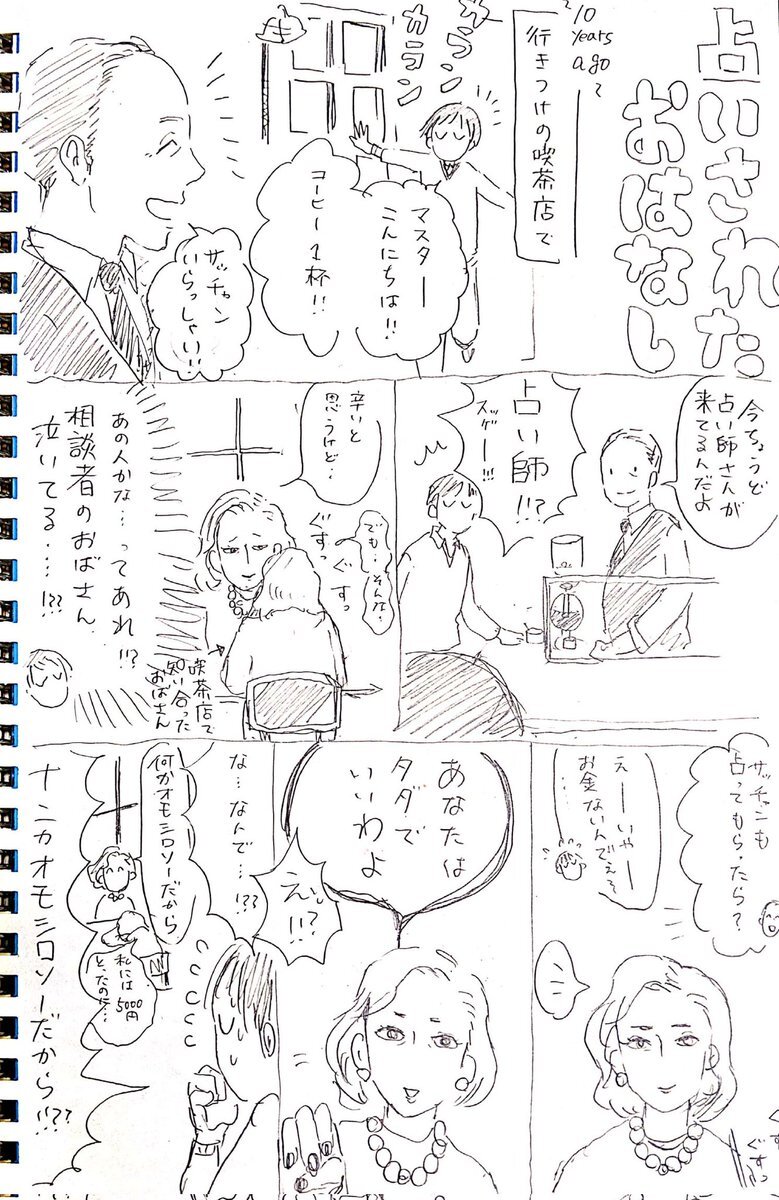 占いされた
おはなし
~10
years
ago~
行きつけの喫茶店で
カラン
カラン
マスター
こんにちは!!
コーヒー1杯!!
サッチャン
いらっしゃい!!
今ちょうど
占い師さんが
来てるんだよ
占い師!!?
スッゲー!!!
辛いと
思うけど…
でも…そんな…
ぐすっ
ぐすっ
喫茶店で
知り合った
おばさん
あの人かな…ってあれ!!?
相談者のおばさん
泣いてる…!??
サッチャンも
占ってもらったら?
えーいやー
お金ないんでぇ~
ぐす
ぐすっ
あなたは
タダで
いいわよ
えっ!!?
な…なんで…!??
何かオモシロソーだから
私には
5000円
とったのに…
ナニカオモシロソーだから!!??